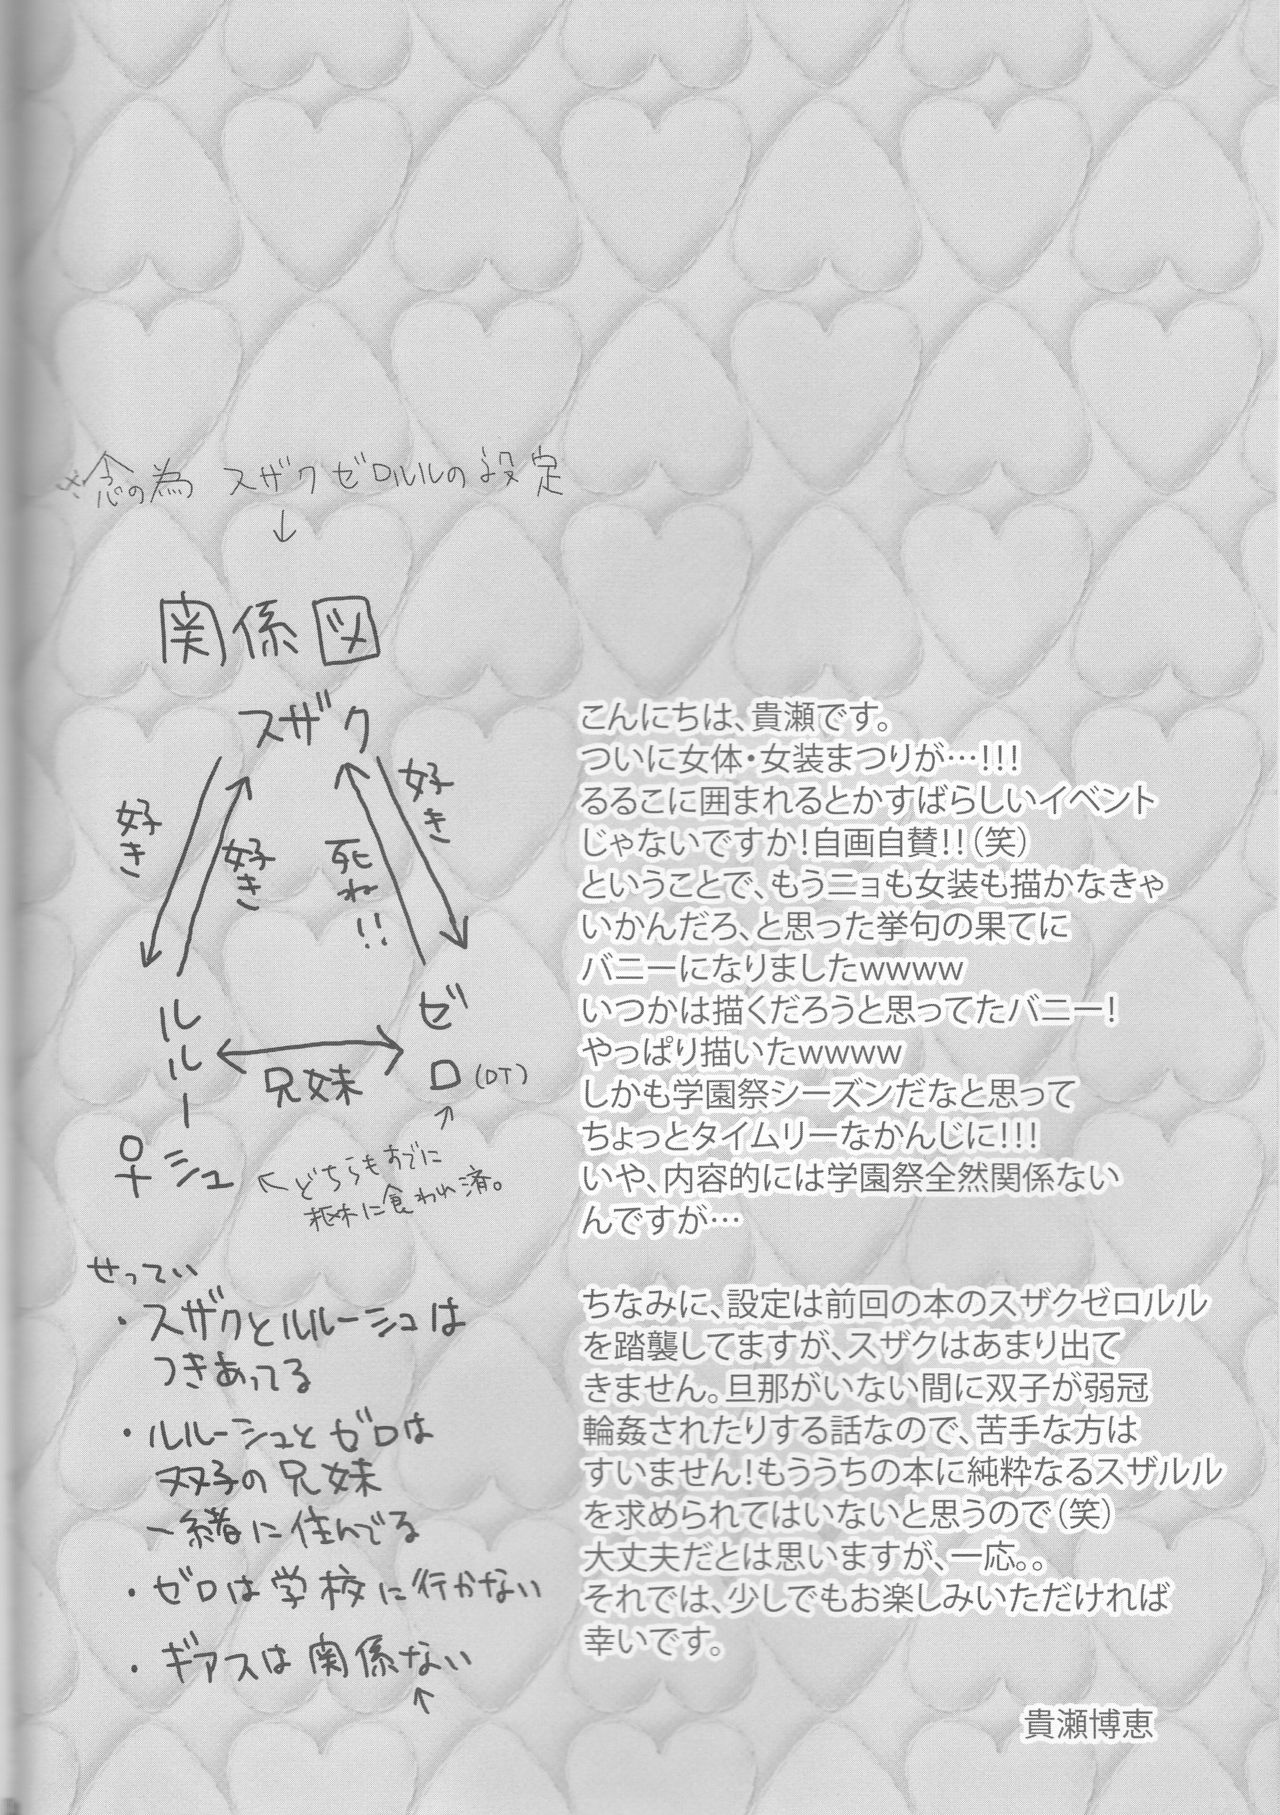 念の為 スザクゼロルルの設定
↓
関係図
スザク
好き
好き
死ね!!
好き
ルルーシュ
♀
兄妹
ゼロ(DT)
↑
←どちらもすでに
枢木に食われ済。
せってい
・スザクとルルーシュは
つきあってる
・ルルーシュとゼロは
双子の兄妹
一緒に住んでる
・ゼロは学校に行かない
・ギアスは関係ない
↑
こんにちは、貴瀬です。
ついに女体・女装まつりが…!!!
るるこに囲まれるとかすばらしいイベント
じゃないですか!自画自賛!!(笑)
ということで、もうニョも女装も描かなきゃ
いかんだろ、と思った挙句の果てに
バニーになりましたwwww
いつかは描くだろうと思ってたバニー!
やっぱり描いたwwww
しかも学園祭シーズンだなと思って
ちょっとタイムリーなかんじに!!!
いや、内容的には学園祭全然関係ない
んですが…
ちなみに、設定は前回の本のスザクゼロルル
を踏襲してますが、スザクはあまり出て
きません。旦那がいない間に双子が弱冠
輪姦されたりする話なので、苦手な方は
すいません!もううちの本に純粋なるスザルル
を求められてはいないと思うので(笑)
大丈夫だとは思いますが、一応。。
それでは、少しでもお楽しみいただければ
幸いです。
貴瀬博恵